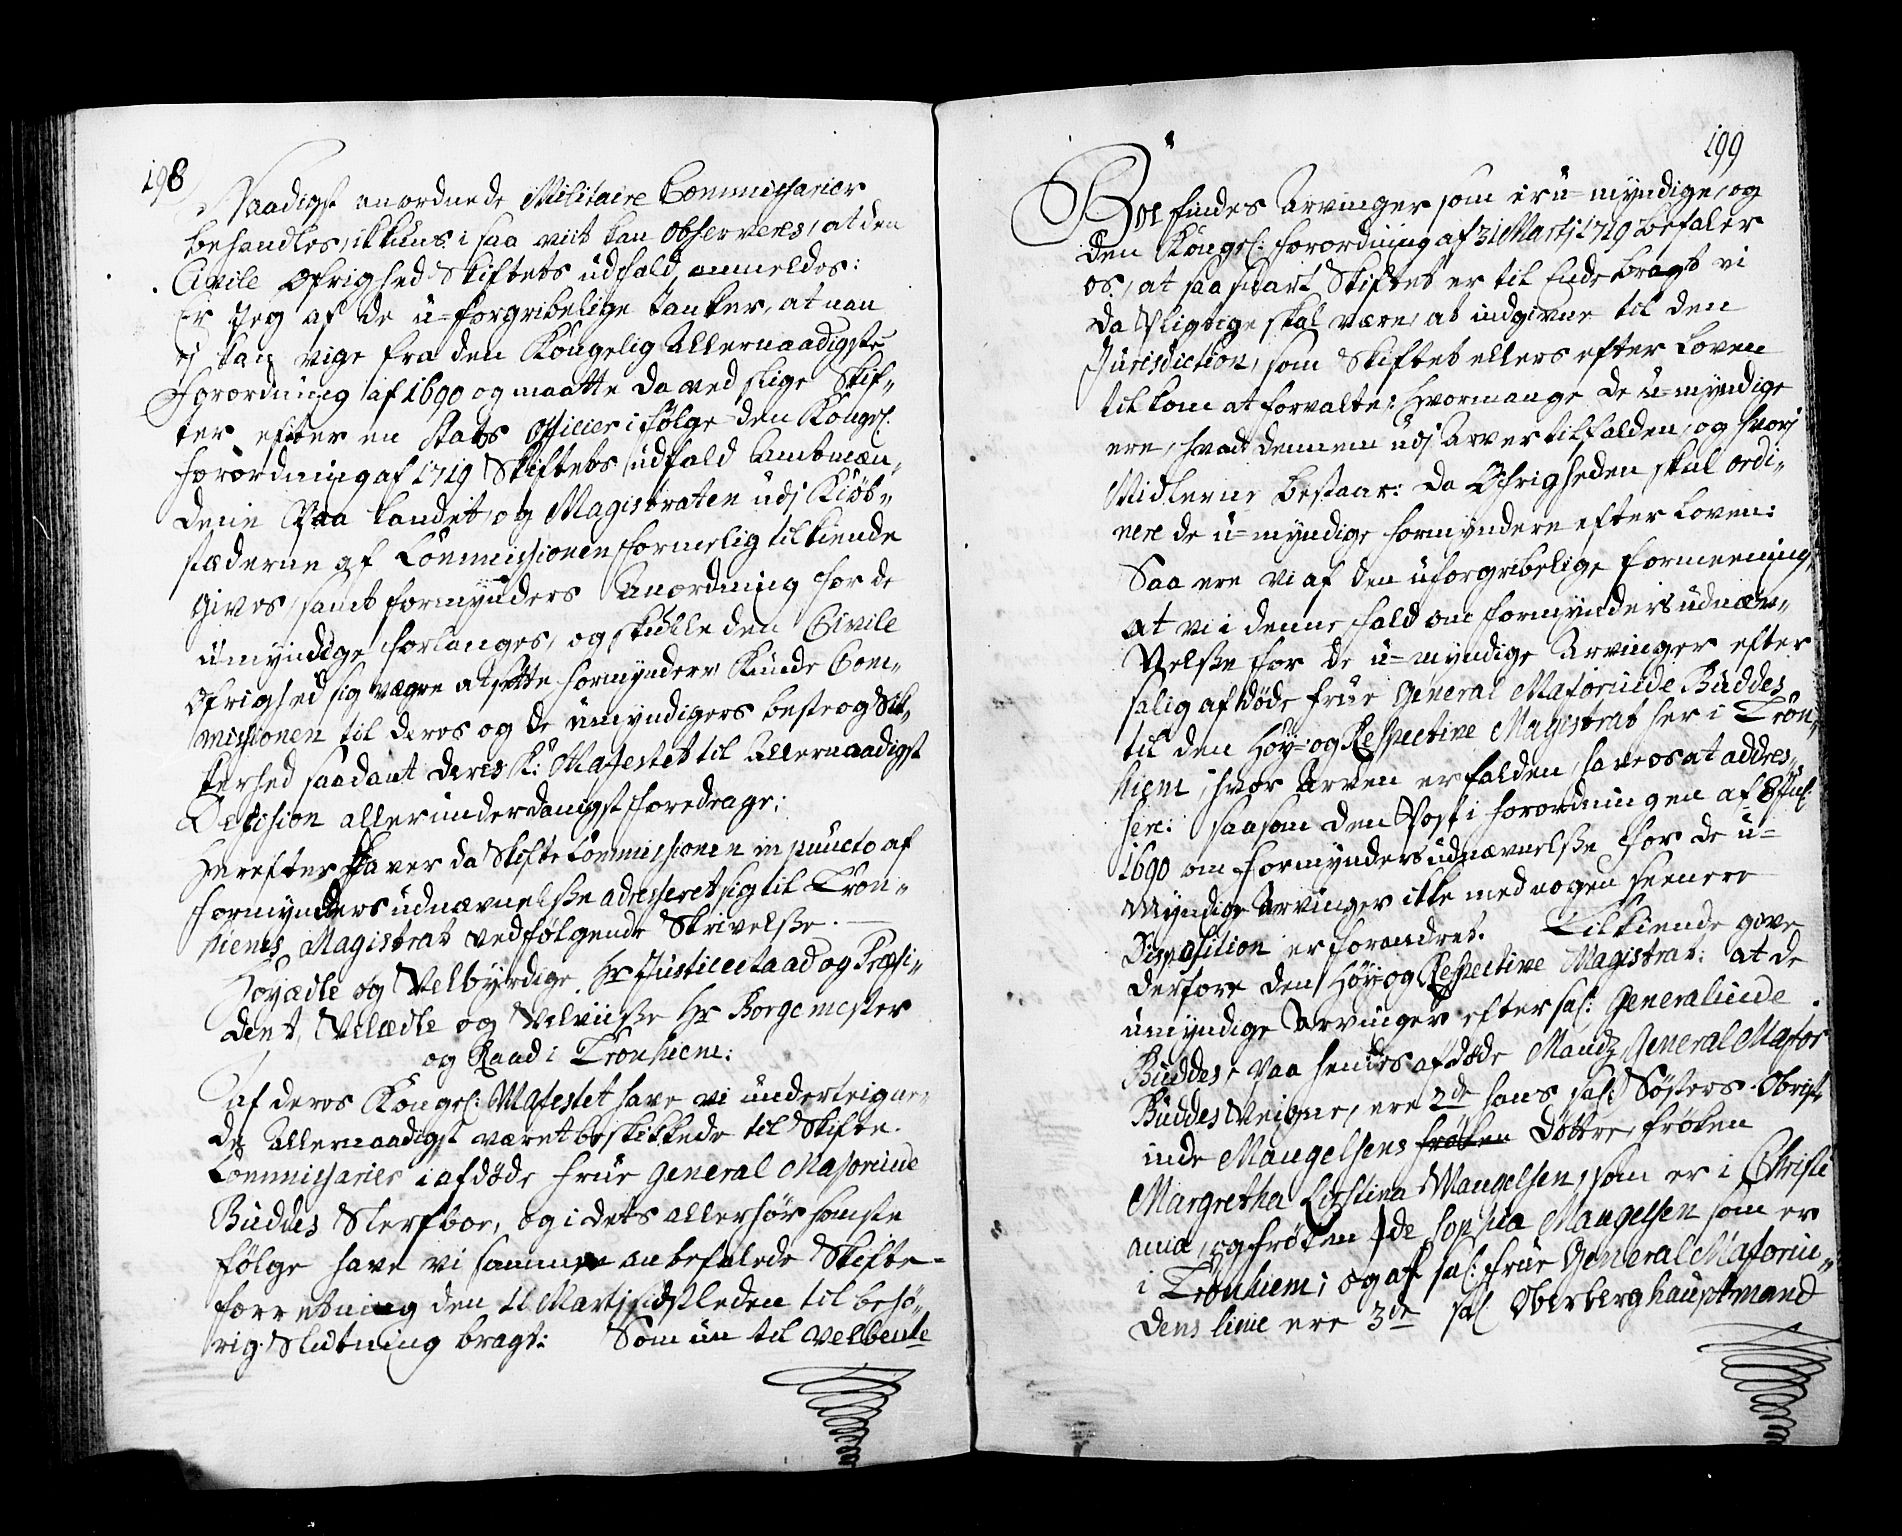 198
Naadigst anordnede Militaire Commissarier
behandles, ikkuns i saa viit kan observeres, at den
Civile Øfrighed Skiftets udfald anmeldes:
Er Jeg af de u-forgribelige tanker, at man
ej kan vige fra den Kongelig Allernaadigste
Forordning af 1690 og maatte da ved slige Skif-
ter efter en Stabs Officier i følge den Kongel:
forordning af 1719 Skiftets udfald Ambtmæn-
dene Paa Landet, og Magistraten udj Kiøb-
stæderne af Commissionen formelig tilkiende
gives, samt formynders Anordning for de
umyndige forlanges, og skulle den Civile
Øfrighed sig vægre at sette formyndere kunde Com-
missionen til deres og de umyndigers beste og Sik-
kerhed saadant Deres K: Majestet til Allernaadigst
Decision allerunderdanigst foredrage:
Herefter haver da Skifte Commissionen in puncto af
formynders udnævnelsse adresseret sig til Tron-
hiems Magistrat ved følgende Skrivelsse.
Høyædle og Velbyrdige Hr Justicetaad og Præsi-
dent, Velædle og Velviisse Hr Borgemester
og Raad i Tronhiem:
Af deres Kongel: Majestet have vi underteigne-
de Allernaadigst været beskikkede til Skifte-
Commissaries i afdøde Frue General Majorinde
Buddes Sterfboe, og i dets allerhørsomste
følge have vi samme anbefalede Skifte-
forretning den 11 Martj sidstleden til behø-
rig Slutning bragt: Som nu til velbente
199
Boe findes Arvinger som er u-myndige, og
den Kongel: forordning af 31 Martj 1719 befaler
os, at saa snart Skiftet er til Ende bragt vi
da Pligtige skal være, at indgivne til den
Jurisdiction, som Skiftet ellers efter Loven
tilkom at forvalte: Hvormange de u-myndige
ere, hvadt dennem udj Arver tilfalden, og hvorj
Midlerne bestaar: da Øfrigheden skal ordi-
nere de u-myndige formyndere efter Loven:
Saa ere vi af den uforgribelige formeening,
at vi i denne fald om formynders udnæv-
nelsse for de u-myndige Arvinger efter
salig afdøde Frue General Majorinde Buddes
til den Høy- og Respective Magistrat her i Tron-
hiem, hvor Arven er falden, have os at addres-
sere: saasom den Post i forordningen af 8 Jul:
1690 om formynders udnævnelsse for de u-
myndige Arvinger ikke med nogen seenere
Disposition er forandret. Tilkiende give
derfore den Høy og Respective Magistrat: at de
umyndige Arvinger efter sal: Generalinde
Buddes Paa hendes afdøde Mands General Major
Buddes Veigne, ere 2de hans sal: Søsters Obrist-
inde Mangelsens frøken Døttre, frøken
Margretha Cirstina Mangelsen, som er i Christi-
ania, og frøken Ide Sophia Mangelsen som er
i Tronhiem; og af sal: Frue General Majorin-
dens linie ere 3de sal: Oberberghauptmand